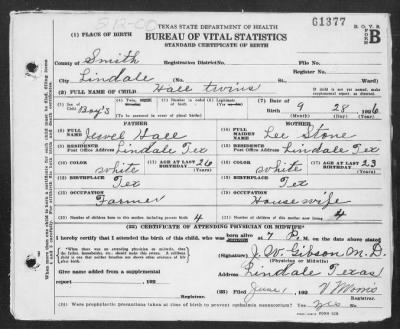 512-00
TEXAS STATE DEPARTMENT OF HEALTH
61377
B. O. V. S.
FORM B
(1) PLACE OF BIRTH
BUREAU OF VITAL STATISTICS
STANDARD CERTIFICATE OF BIRTH
County of Smith Registration District No. File No.
City Lindale (No. St.) Register No.
(2) FULL NAME OF CHILD Hall twins
(If child is not yet named, make supplemental report, as directed.)
(3) Sex of Child Boy's
(4) Twin,
(5) Number in order of birth
(To be answered in event of plural births)
(6) Legitimate
(7) Date of Birth 9 28 1926
(Month) (Day) (Year)
FATHER
(8) FULL NAME Jewel Hall
(9) RESIDENCE Post Office Address Lindale Tex
(10) COLOR white
(11) AGE AT LAST BIRTHDAY 26
(12) BIRTHPLACE Tex
(13) OCCUPATION Farmer
MOTHER
(14) FULL MAIDEN NAME Lee Stone
(15) RESIDENCE Post Office Address Lindale Tex
(16) COLOR white
(17) AGE AT LAST BIRTHDAY 23
(18) BIRTHPLACE Tex
(19) OCCUPATION House wife
(20) Number of children born to this mother including present birth 4
(21) Number of children of this mother now living 4
(22) CERTIFICATE OF ATTENDING PHYSICIAN OR MIDWIFE*
I hereby certify that I attended the birth of this child, who was born alive at 7 P. m. on the date above stated
(Signature) J. W. Gibson M.D.
(Physician or Midwife)
Address Lindale Texas
Given name added from a supplemental report 192
(23) Filed June 1 192
(24) Were prophylactic precautions taken at time of birth to prevent ophthalmia neonatorum? Yes